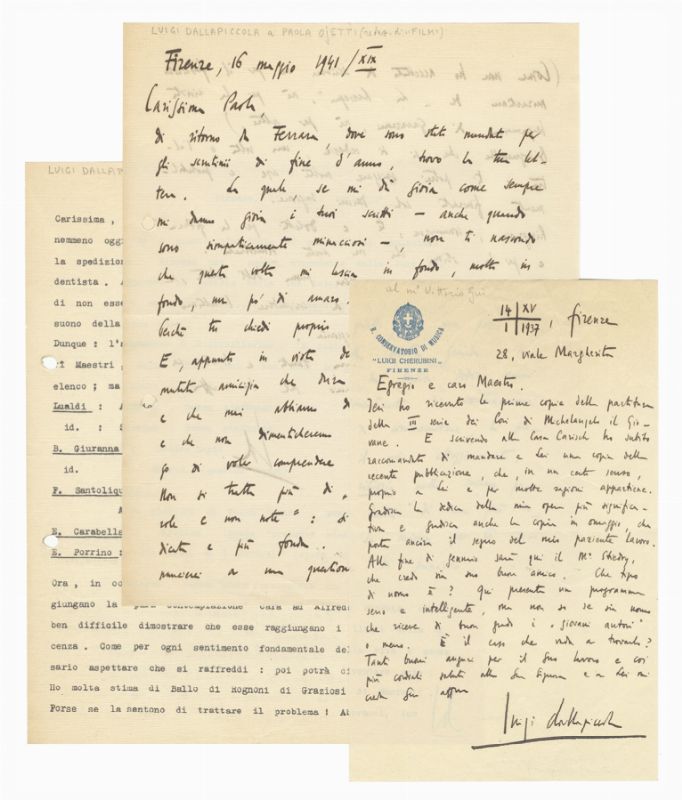 LUIGI DALLAPICCOLA a PAOLA OJETTI
Firenze, 16 maggio 1941/XIX
Carissima Paola,
di ritorno da Ferrara, dove sono stato mandato per
gli scrutinii di fine d'anno, trovo la tua let-
tera. La quale, se mi dà gioia come sempre
mi danno gioia i tuoi scritti – anche quando
sono simpaticamente minacciosi –, non ti nascondo
che questa volta mi lascia in fondo, molto in
fondo, un po' di amaro.
Perchè tu chiedi proprio
E, appunto in vista de
amicizia che
e che noi abbiamo
e che non dimenticheremo
go di voler comprendere
Non si tratta più di "
vole e non note": si
dicate e più fonda
a una question
LUIGI DALLAP
Carissima,
nemmeno oggi
la spedizion
dentista. A
di non esse
suono della
Dunque : l'
Maestri
elenco ; ma
Lualdi : A
id. : S
B. Giuranna
id.
F. Santoliqu
A
E. Carabella
E. Porrino :
Ora, in oc
giungano la pura contemplazione cara ad Alfred
ben difficile dimostrare che esse raggiungano i
cenza. Come per ogni sentimento fondamentale del
sario aspettare che si raffreddi : poi potrà ci
Ho molta stima di Ballo di Rognoni di Graziosi
Forse se la sentono di trattare il problema! A
al m° Vittorio Gui
R. CONSERVATORIO DI MUSICA
"LUIGI CHERUBINI"
FIRENZE
14 XV
1 1937, Firenze
28, viale Margherita
Egregio e caro Maestro.
Ieri ho ricevuto le prime copie della partitura
della III serie dei Cori di Michelangelo il Gio-
vane. E scrivendo alla Casa Carisch ho subito
raccomandato di mandare a Lei una copia della
recente pubblicazione, che, in un certo senso,
proprio a Lei e per molte ragioni appartiene.
Gradisca la dedica della mia opera più significa-
tiva e gradisca anche la copia in omaggio, che
porta ancora il segno del mio paziente lavoro.
Alla fine di gennaio sarà qui il M° Shedry,
che credo sia suo buon amico. Che tipo
di uomo è? Qui presenta un programma
serio e intelligente, ma non so se sia uomo
che riceve di buon grado i "giovani autori"
o meno. È il caso che vada a trovarlo?
Tanti buoni auguri per il Suo lavoro e coi
più cordiali saluti alla Sua Signora e a Lei mi
creda Suo
Luigi Dallapiccola